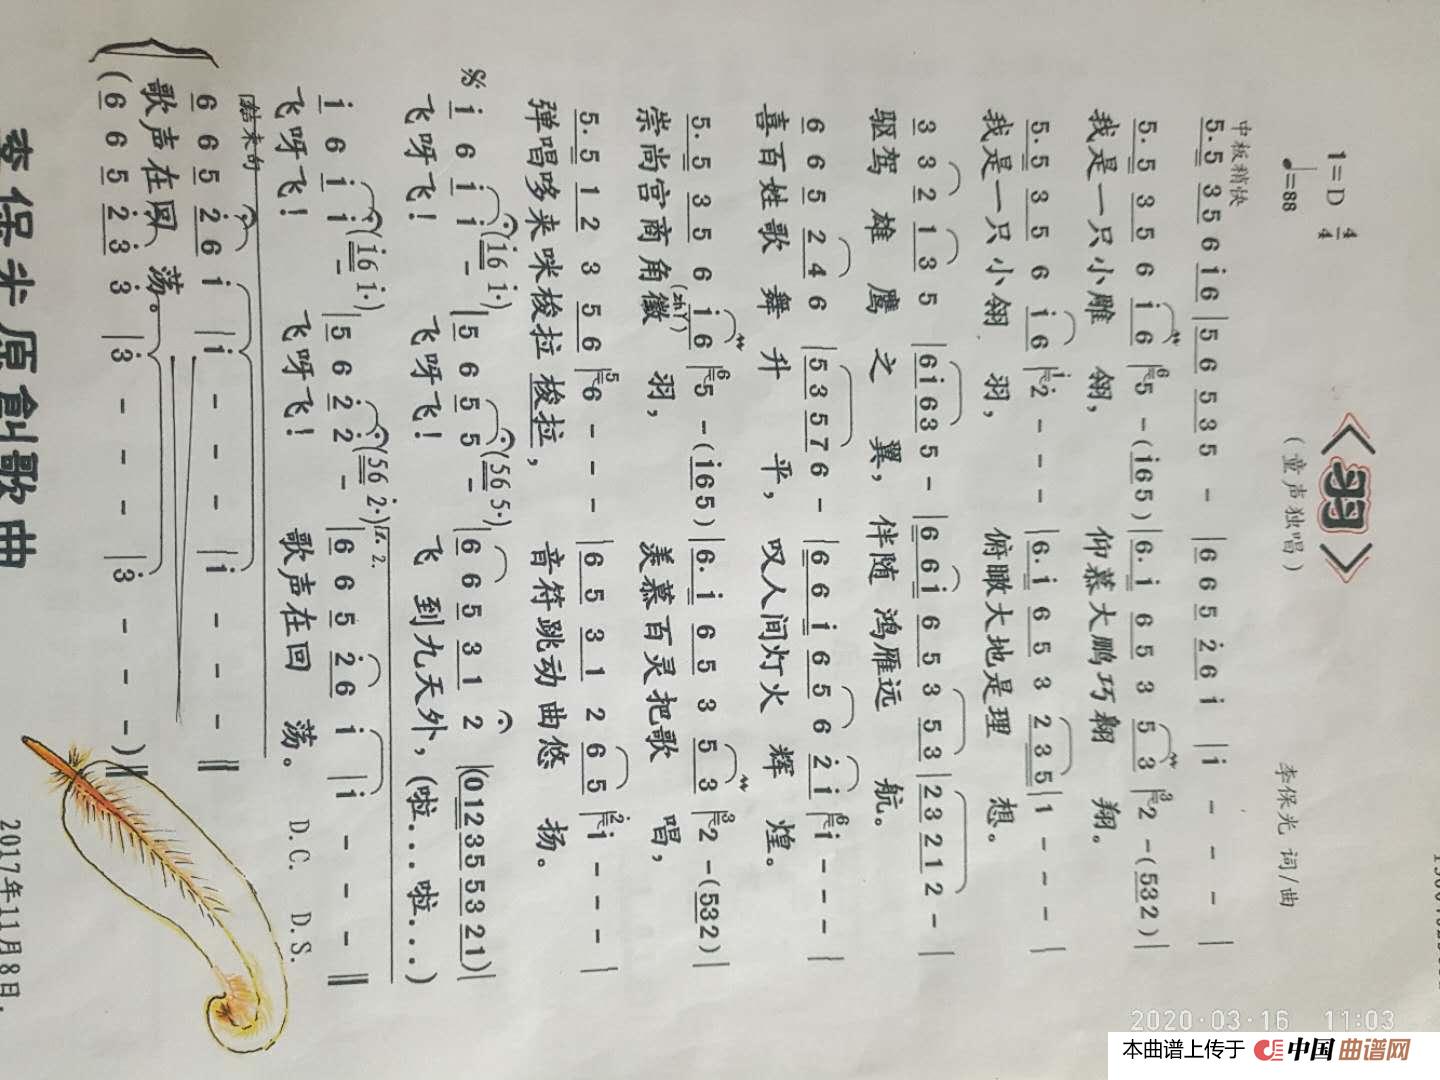 《羽》
（童声独唱）
1=D 4/4
♩=88
李保光 词/曲
中板稍快
5·5 3 5 6 i 6 | 5 6 5 3 5 - | 6 6 5 2 6 i | i - - - |
5·5 3 5 6 i 6 | 5 - (i 6 5) | 6·i 6 5 3 5 3 | 2 - (5 3 2) |
我是一只小雕 翎， 仰慕大鹏巧翱 翔。
5·5 3 5 6 i 6 | 2 - - - | 6·i 6 5 3 2 3 5 | 1 - - - |
我是一只小翎 羽， 俯瞰大地是理 想。
3 3 2 1 3 5 | 6 i 6 3 5 - | 6 6 i 6 5 3 5 3 | 2 3 2 1 2 - |
驱驾 雄 鹰 之 翼， 伴随 鸿雁远 航。
6 6 5 2 4 6 | 5 3 5 7 6 - | 6 6 i 6 5 6 2 i | i - - - |
喜百姓歌 舞 升 平， 叹人间灯火 辉 煌。
5·5 3 5 6 i 6 | 5 - (i 6 5) | 6·i 6 5 3 5 3 | 2 - (5 3 2) |
崇尚宫商角徵(zhǐ) 羽， 羡慕百灵把歌 唱，
5·5 1 2 3 5 6 | 6 - - - | 6 5 3 1 2 6 5 | i - - - |
弹唱哆来咪梭拉 梭拉， 音符跳动曲悠 扬。
i 6 i i - (i 6 i·) | 5 6 5 5 - (5 6 5·) | 6 6 5 3 1 2 | (0 1 2 3 5 5 3 2 1) |
飞呀飞！ 飞呀飞！ 飞 到九天外，(啦...啦...)
1. 2.
i 6 i i - (i 6 i·) | 5 6 2 2 - (5 6 2·) | 6 6 5 2 6 i | i - - - ‖
飞呀飞！ 飞呀飞！ 歌声在回 荡。 D.C. D.S.
结束句
6 6 5 2 6 i | i - - - | i - - - ‖
歌声在回 荡。
(6 6 5 2 3 3 | 3 - - - | 3 - - -)‖
李保光原創歌曲
2017年11月8日.
2020-03-16 11:03
本曲谱上传于 中国曲谱网